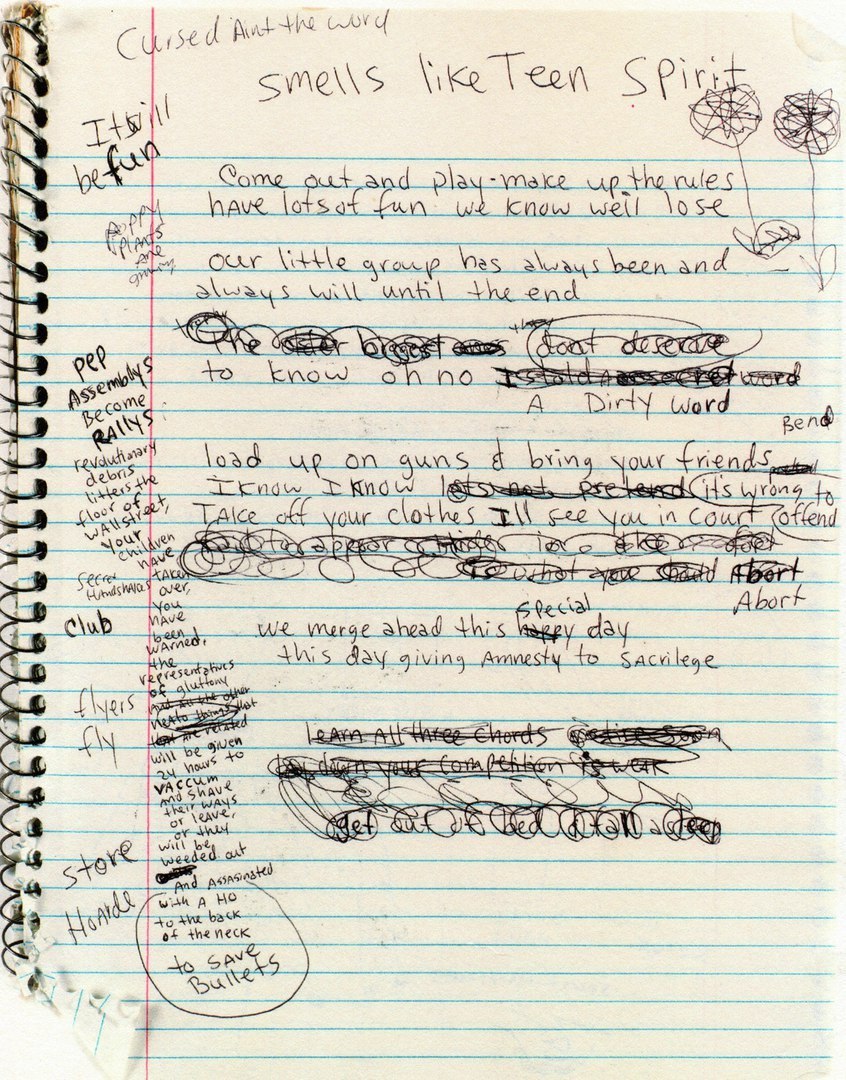 Cursed Aint the word
smells like Teen Spirit
It will
be fun
Come out and play - make up the rules
have lots of fun we know we'll lose
poppy
plants
are
our little group has always been and
always will until the end
The biggest dont deserve
to know oh no Is told A secret word
A Dirty word
pep
Assemblys
Become
RALLYS
Bend
load up on guns & bring your friends
I know I know lets not pretend its wrong to
offend
TAke off your clothes I'll see you in court
is what you should Abort
Abort
special
we merge ahead this happy day
this day giving Amnesty to SAcrilege
LEArn All three Chords
lay down your Competition is weak
get out of bed & fall asleep
revolutionary
debris
litters the
floor of
WAllstreet,
your
children
have
taken
over,
you
have
been
warned,
the
representatives
of gluttony
are related
will be given
24 hours to
VACCUM
And shave
their ways
or leave,
or they
will be
weeded out
And AssAsinated
with A Ho
to the back
of the neck
to SAVE
Bullets
secret
Handshakes
Club
flyers
fly
store
HoArde